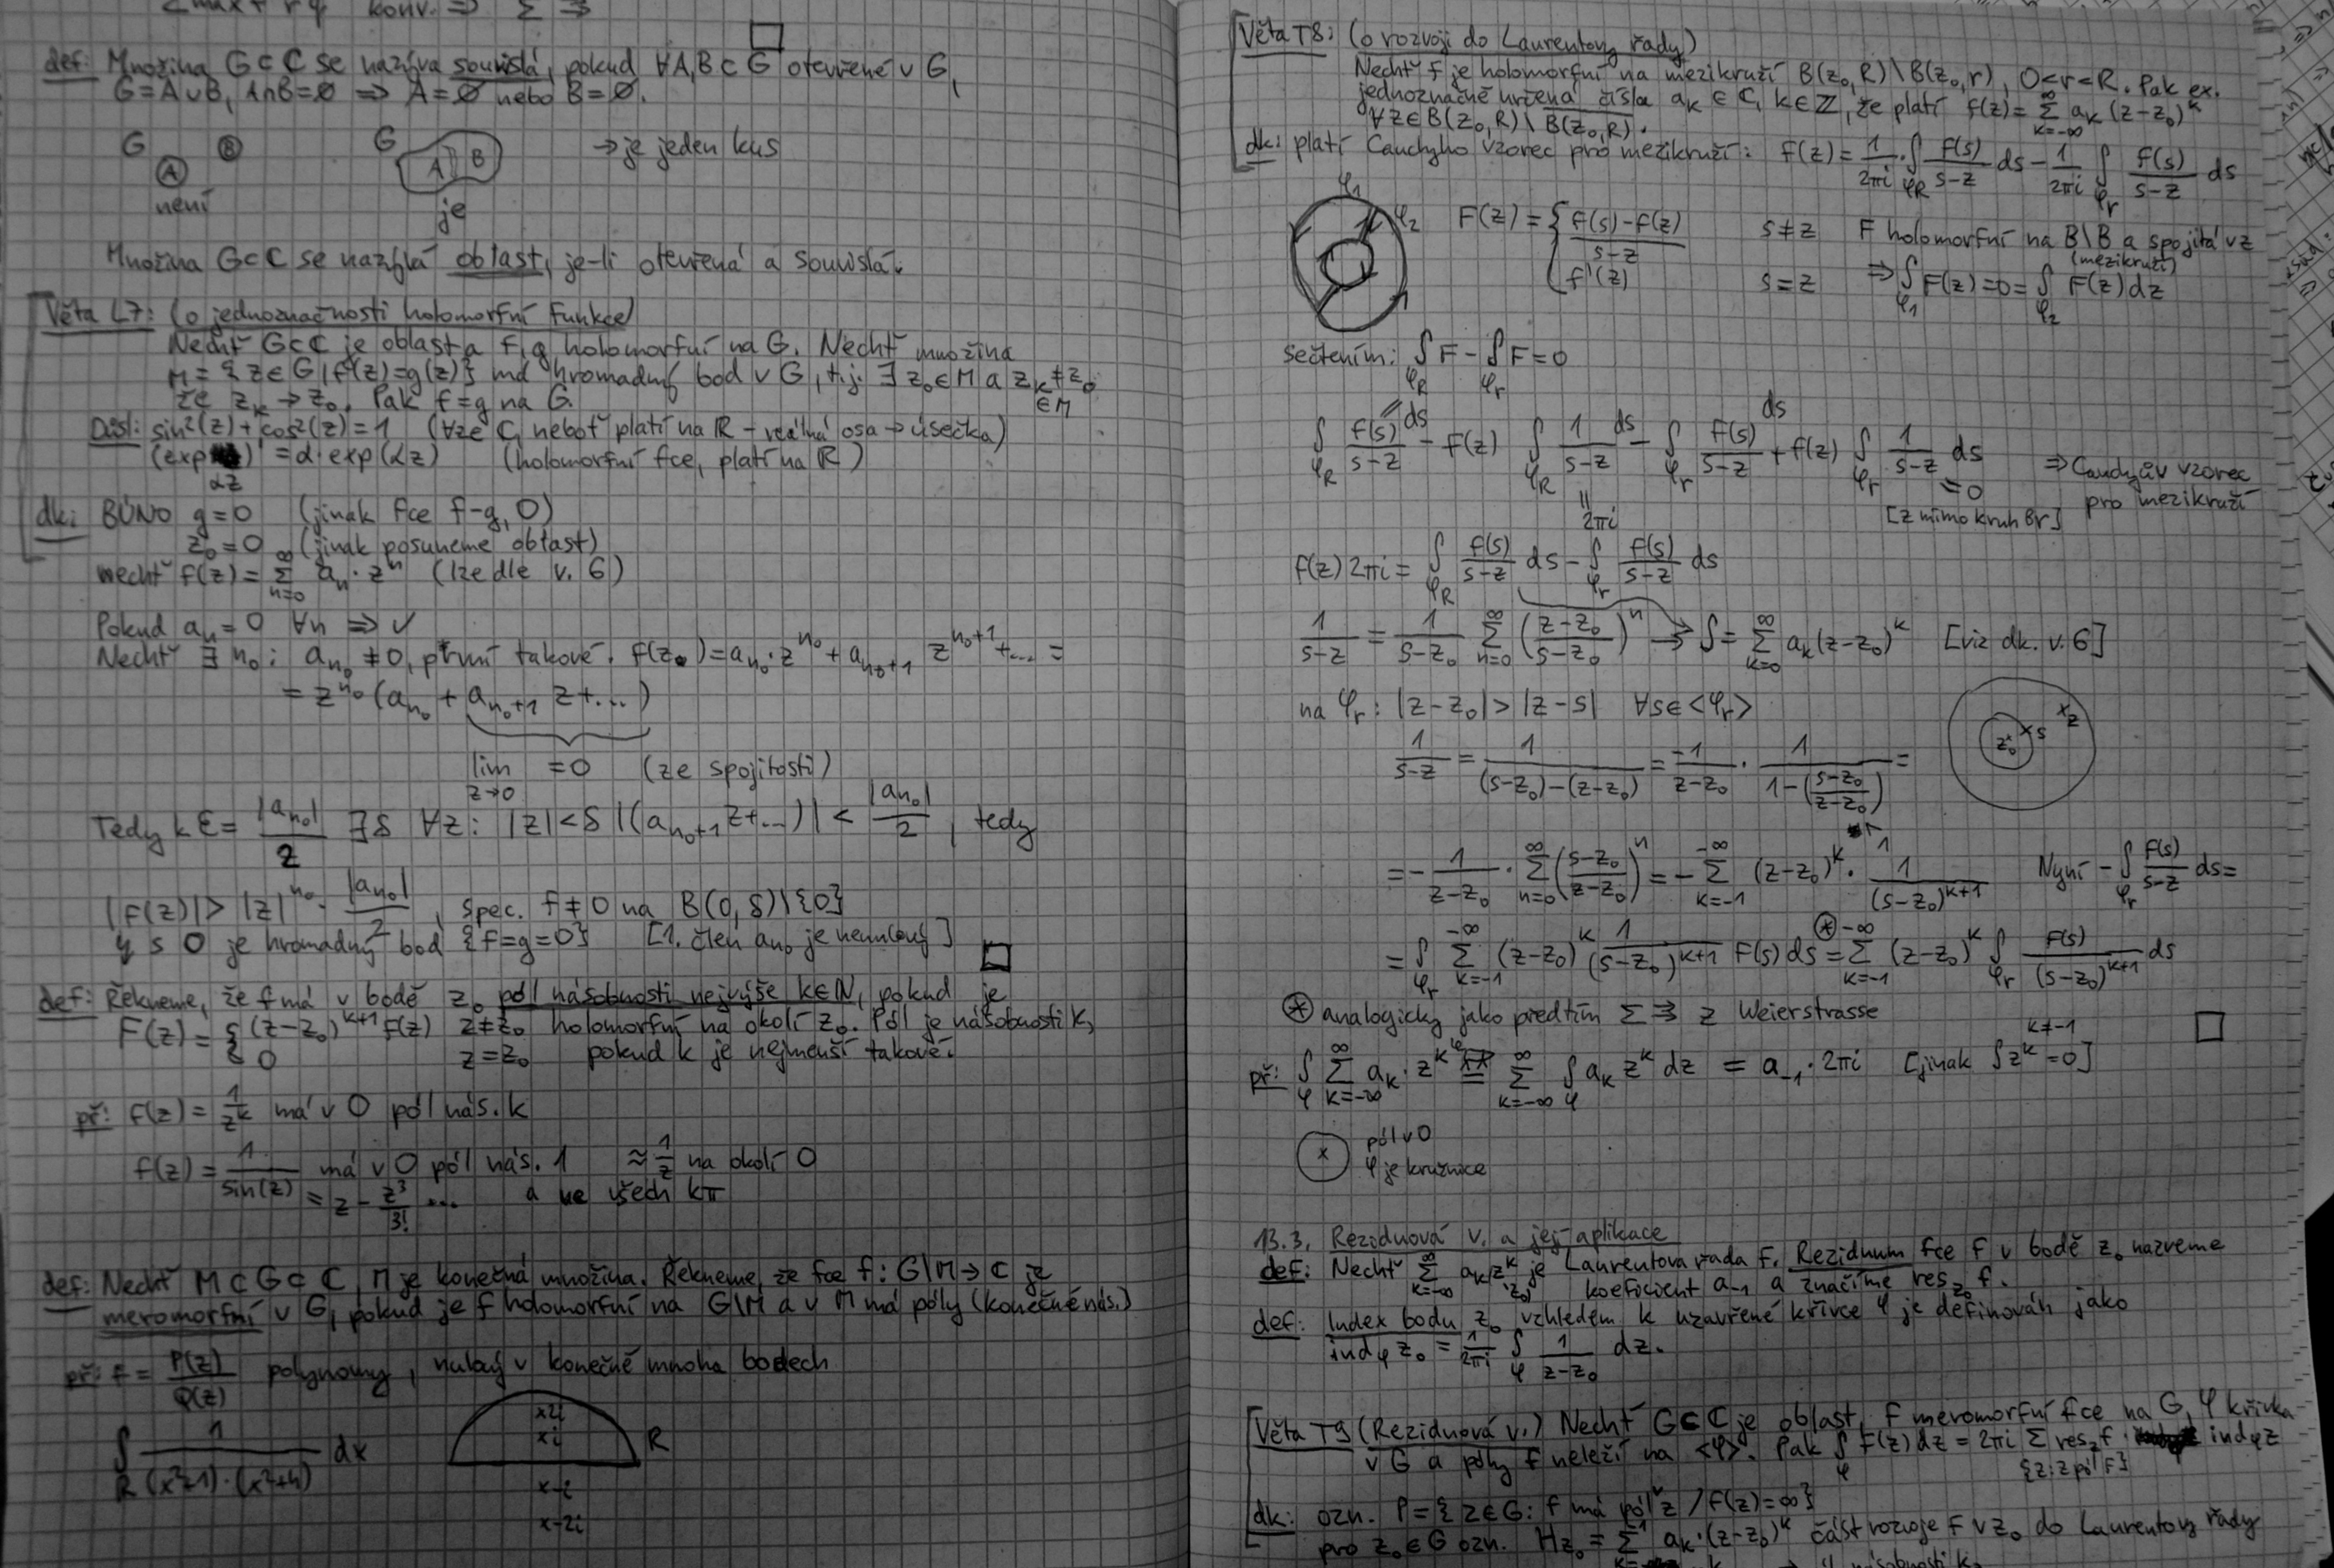 konv. ⇒ Σ ⇉
def: Množina G⊂ℂ se nazívá souvislá, pokud ∀A,B⊂G otevřené v G,
G=A∪B, A∩B=∅ ⇒ A=∅ nebo B=∅.
G Ⓐ Ⓑ G A B → je jeden kus
není je
Množina G⊂ℂ se nazývá oblast, je-li otevřená a souvislá.
Věta L7: (o jednoznačnosti holomorfní funkce)
Nechť G⊂ℂ je oblast a f,g holomorfní na G. Nechť množina
M = {z∈G | f(z)=g(z)} má hromadný bod v G, t.j. ∃ z₀∈M a z_k≠z₀ ∈M
že z_k → z₀. Pak f=g na G.
Důsl: sin²(z)+cos²(z)=1 (∀z∈ℂ, neboť platí na ℝ – reálná osa → úsečka)
(exp αz)' = α·exp(αz) (holomorfní fce, platí na ℝ)
dk: BÚNO g=0 (jinak fce f-g, 0)
z₀=0 (jinak posuneme oblast)
nechť f(z) = Σ_{n=0}^∞ a_n·zⁿ (lze dle v. 6)
Pokud a_n=0 ∀n ⇒ ✓
Nechť ∃ n₀: a_{n₀}≠0, první takové. f(z) = a_{n₀}·z^{n₀} + a_{n₀+1} z^{n₀+1} + ... =
= z^{n₀}(a_{n₀} + a_{n₀+1} z + ...)
lim_{z→0} = 0 (ze spojitosti)
Tedy k ε = |a_{n₀}|/2 ∃δ ∀z: |z|<δ |(a_{n₀+1}z+...)| < |a_{n₀}|/2, tedy
|f(z)| > |z|^{n₀}·|a_{n₀}|/2, spec. f≠0 na B(0,δ)\{0}
↯ s 0 je hromadný bod {f=g=0} [1. člen a_{n₀} je nenulový] □
def: Řekneme, že f má v bodě z₀ pól násobnosti nejvýše k∈ℕ, pokud je
F(z) = { (z-z₀)^{k+1} f(z) z≠z₀ holomorfní na okolí z₀. Pól je násobnosti k,
0 z=z₀ pokud k je nejmenší takové.
př: f(z) = 1/z^k má v 0 pól nás. k
f(z) = 1/sin(z) má v 0 pól nás. 1 ≈ 1/z na okolí 0
= z - z³/3! ... a ve všech kπ
def: Nechť M⊂G⊂ℂ, M je konečná množina. Řekneme, že fce f: G\M→ℂ je
meromorfní v G, pokud je f holomorfní na G\M a v M má póly (konečné nás.)
př: f = P(z)/Q(z) polynomy, nulový v konečně mnoha bodech
∫_ℝ 1/((x²+1)·(x²+4)) dx
x2i
xi R
x-i
x-2i
Věta T8: (o rozvoji do Laurentovy řady)
Nechť f je holomorfní na mezikruží B(z₀,R)\B(z₀,r), 0<r<R. Pak ex.
jednoznačně určená čísla a_k∈ℂ, k∈ℤ, že platí f(z) = Σ_{k=-∞}^∞ a_k (z-z₀)^k
∀z∈B(z₀,R)\B(z₀,R).
dk: platí Cauchyho vzorec pro mezikruží: f(z) = 1/2πi · ∫_{φR} f(s)/(s-z) ds - 1/2πi ∫_{φr} f(s)/(s-z) ds
φ₁ φ₂ F(z) = { (f(s)-f(z))/(s-z) s≠z F holomorfní na B\B a spojitá v z
(mezikruží)
f'(z) s=z ⇒ ∫_{φ₁} F(z)=0= ∫_{φ₂} F(z)dz
sečtením: ∫_{φR} F - ∫_{φr} F = 0
∫_{φR} f(s)/(s-z) ds - f(z) ∫_{φR} 1/(s-z) ds - ∫_{φr} f(s)/(s-z) ds + f(z) ∫_{φr} 1/(s-z) ds ⇒ Cauchyův vzorec
= 2πi = 0 pro mezikruží
[z mimo kruh Br]
f(z) 2πi = ∫_{φR} f(s)/(s-z) ds - ∫_{φr} f(s)/(s-z) ds
1/(s-z) = 1/(s-z₀) Σ_{n=0}^∞ ((z-z₀)/(s-z₀))ⁿ → ∫ = Σ_{k=0}^∞ a_k(z-z₀)^k [viz dk. v. 6]
na φr: |z-z₀| > |z-s| ∀s∈<φr>
z₀ x s x z
1/(s-z) = 1/((s-z₀)-(z-z₀)) = -1/(z-z₀) · 1/(1-((s-z₀)/(z-z₀))) =
= - 1/(z-z₀) · Σ_{n=0}^∞ ((s-z₀)/(z-z₀))ⁿ = - Σ_{k=-1}^{-∞} (z-z₀)^k · 1/(s-z₀)^{k+1} Nyní - ∫_{φr} f(s)/(s-z) ds =
= ∫_{φr} Σ_{k=-1}^{-∞} (z-z₀)^k 1/(s-z₀)^{k+1} f(s) ds =⊛ Σ_{k=-1}^{-∞} (z-z₀)^k ∫_{φr} f(s)/(s-z₀)^{k+1} ds
⊛ analogicky jako předtím Σ ⇉ z Weierstrasse □
př: ∫_φ Σ_{k=-∞}^∞ a_k·z^k = Σ_{k=-∞}^∞ ∫_φ a_k z^k dz = a_{-1}·2πi [jinak ∫z^k = 0] k≠-1
x pól v 0
φ je kružnice
13.3. Reziduová v. a její aplikace
def: Nechť Σ_{k=-∞}^∞ a_k z^k je Laurentova řada f. Reziduum fce f v bodě z₀ nazveme
koeficient a_{-1} a značíme res_{z₀} f.
def: Index bodu z₀ vzhledem k uzavřené křivce φ je definován jako
ind_φ z₀ = 1/2πi ∫_φ 1/(z-z₀) dz.
Věta T9 (Reziduová v.) Nechť G⊂ℂ je oblast, f meromorfní fce na G, φ křivka
v G a póly f neleží na <φ>. Pak ∫_φ f(z)dz = 2πi Σ_{{z: z pól f}} res_z f · ind_φ z
dk: ozn. P = {z∈G: f má pól v z / f(z)=∞}
pro z₀∈G ozn. H_{z₀} = Σ^{-1} a_k·(z-z₀)^k část rozvoje f v z₀ do Laurentovy řady